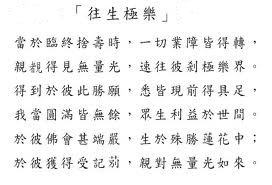 「往生極樂」
當於臨終捨壽時，一切業障皆得轉，
親覩得見無量光，速往彼剎極樂界。
得到於彼此勝願，悉皆現前得具足，
我當圓滿皆無餘，眾生利益於世間。
於彼佛會甚端嚴，生於殊勝蓮花中；
於彼獲得受記莂，親對無量光如來。